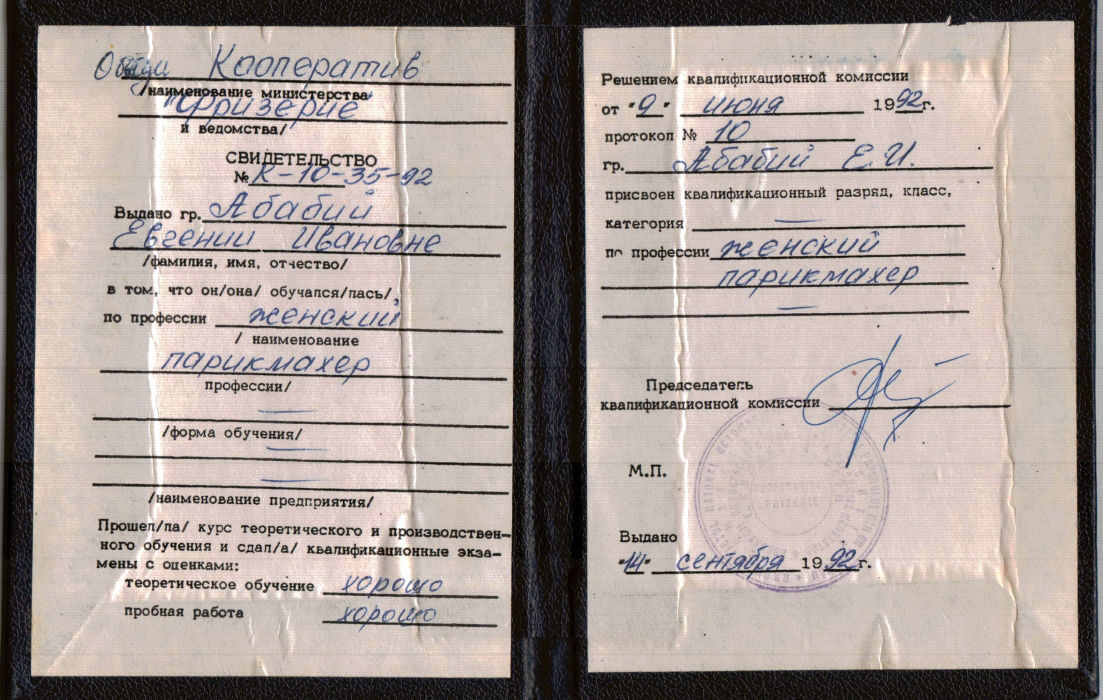 Кооператив
/наименование министерства
"Фризерие"
и ведомства/
СВИДЕТЕЛЬСТВО
№ К-10-35-92
Выдано гр. Абабий
Евгении Ивановне
/фамилия, имя, отчество/
в том, что он/она/ обучался/лась/,
по профессии женский
/ наименование
парикмахер
профессии/
—
/форма обучения/
—
—
/наименование предприятия/
Прошел/ла/ курс теоретического и производствен-
ного обучения и сдал/а/ квалификационные экза-
мены с оценками:
теоретическое обучение хорошо
пробная работа хорошо
Решением квалификационной комиссии
от "9" июня 1992г.
протокол № 10
гр. Абабий Е.И.
присвоен квалификационный разряд, класс,
категория —
по профессии женский
парикмахер
—
Председатель
квалификационной комиссии
М.П.
FRIZERIE
Выдано
"14" сентября 1992г.